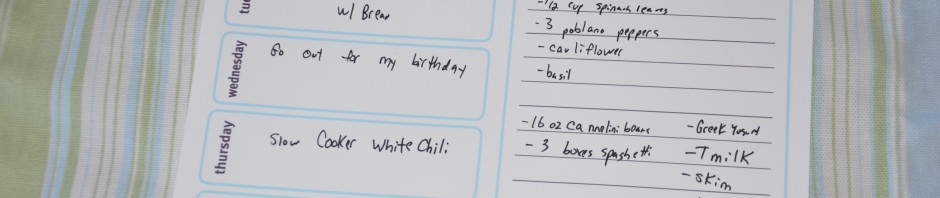 tue
w/ Bread
wednesday
Go out for my birthday
thursday
Slow Cooker White Chili
-1/2 cup spinach leaves
-3 poblano peppers
-cauliflower
-basil
-16 oz cannelini beans
-3 boxes spaghetti
-Greek Yogurt
-T milk
-skim